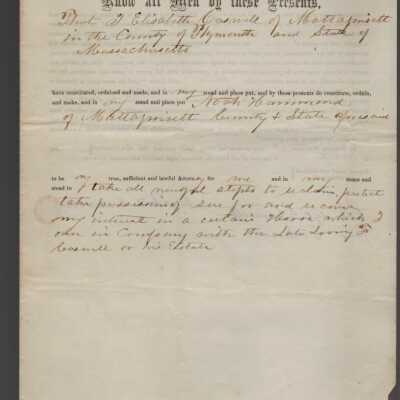 Know all Men by these Presents,
That I Elisabeth Caswell of Mattapoisett
in the County of Plymouth and State of
Massachusetts
have constituted, ordained and made, and in my stead and place put, and by these presents do constitute, ordain,
and make, and in my stead and place put Noah Hammond
of Mattapoisett County & State aforesaid
to be my true, sufficient and lawful Attorney for me and in my name and
stead to take all needful steps to reclaim, protect
take possession, sue for and recover
my interest in a certain House which I
own in Company with the Late
Caswell or his Estate